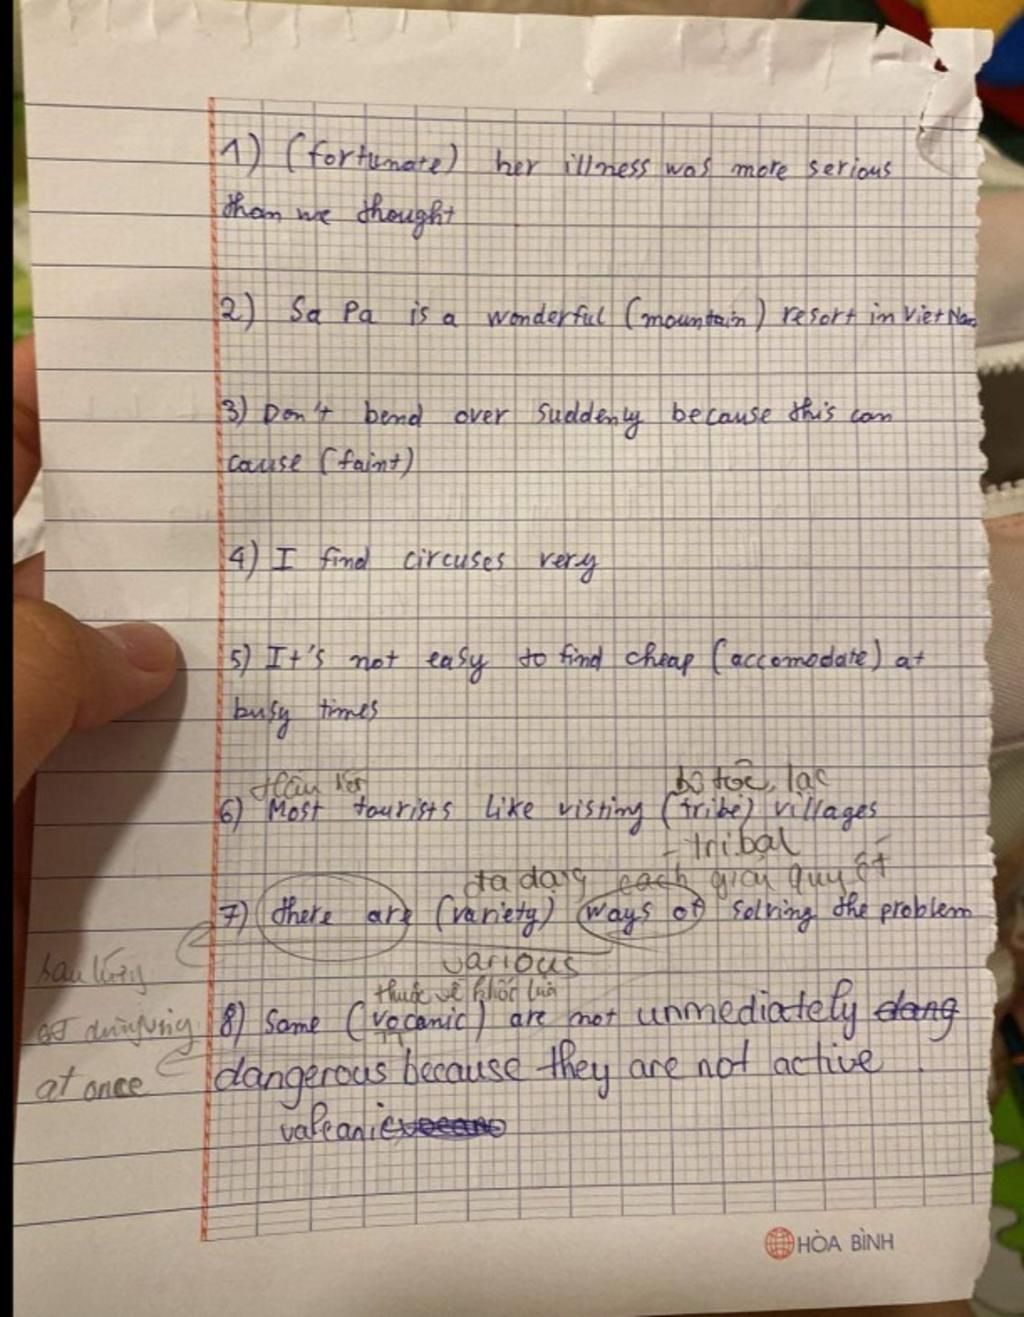 1) (fortunate) her illness was more serious
than we thought
2) Sa Pa is a wonderful (mountain) resort in Viet Nam
3) Don't bend over suddenly because this can
cause (faint)
4) I find circuses very
5) It's not easy to find cheap (accomodate) at
busy times
hầu hết
bộ tộc, lạc
6) Most tourists like visting (tribe) villages
- tribal
đa dạng cách giải quyết
7) there are (variety) ways of solving the problem
various
thuộc về khốc lửa
8) Some (vocanic) are not unmediately dang
at once
dangerous because they are not active.
valcanic
HÒA BÌNH